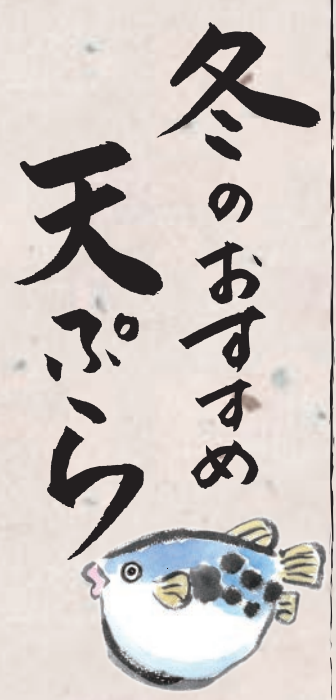 冬のおすすめ
天ぷら